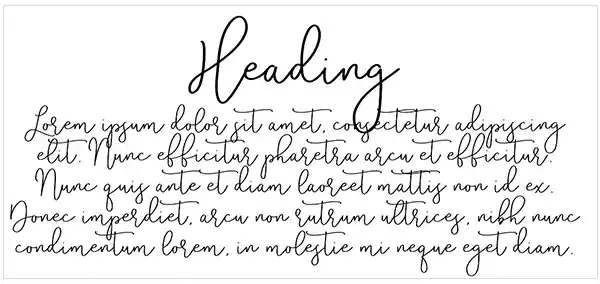 Heading
Lorem ipsum dolor sit amet, consectetur adipiscing
elit. Nunc efficitur pharetra arcu et efficitur.
Nunc quis ante et diam laoreet mattis non id ex.
Donec imperdiet, arcu non rutrum ultrices, nibh nunc
condimentum lorem, in molestie mi neque eget diam.